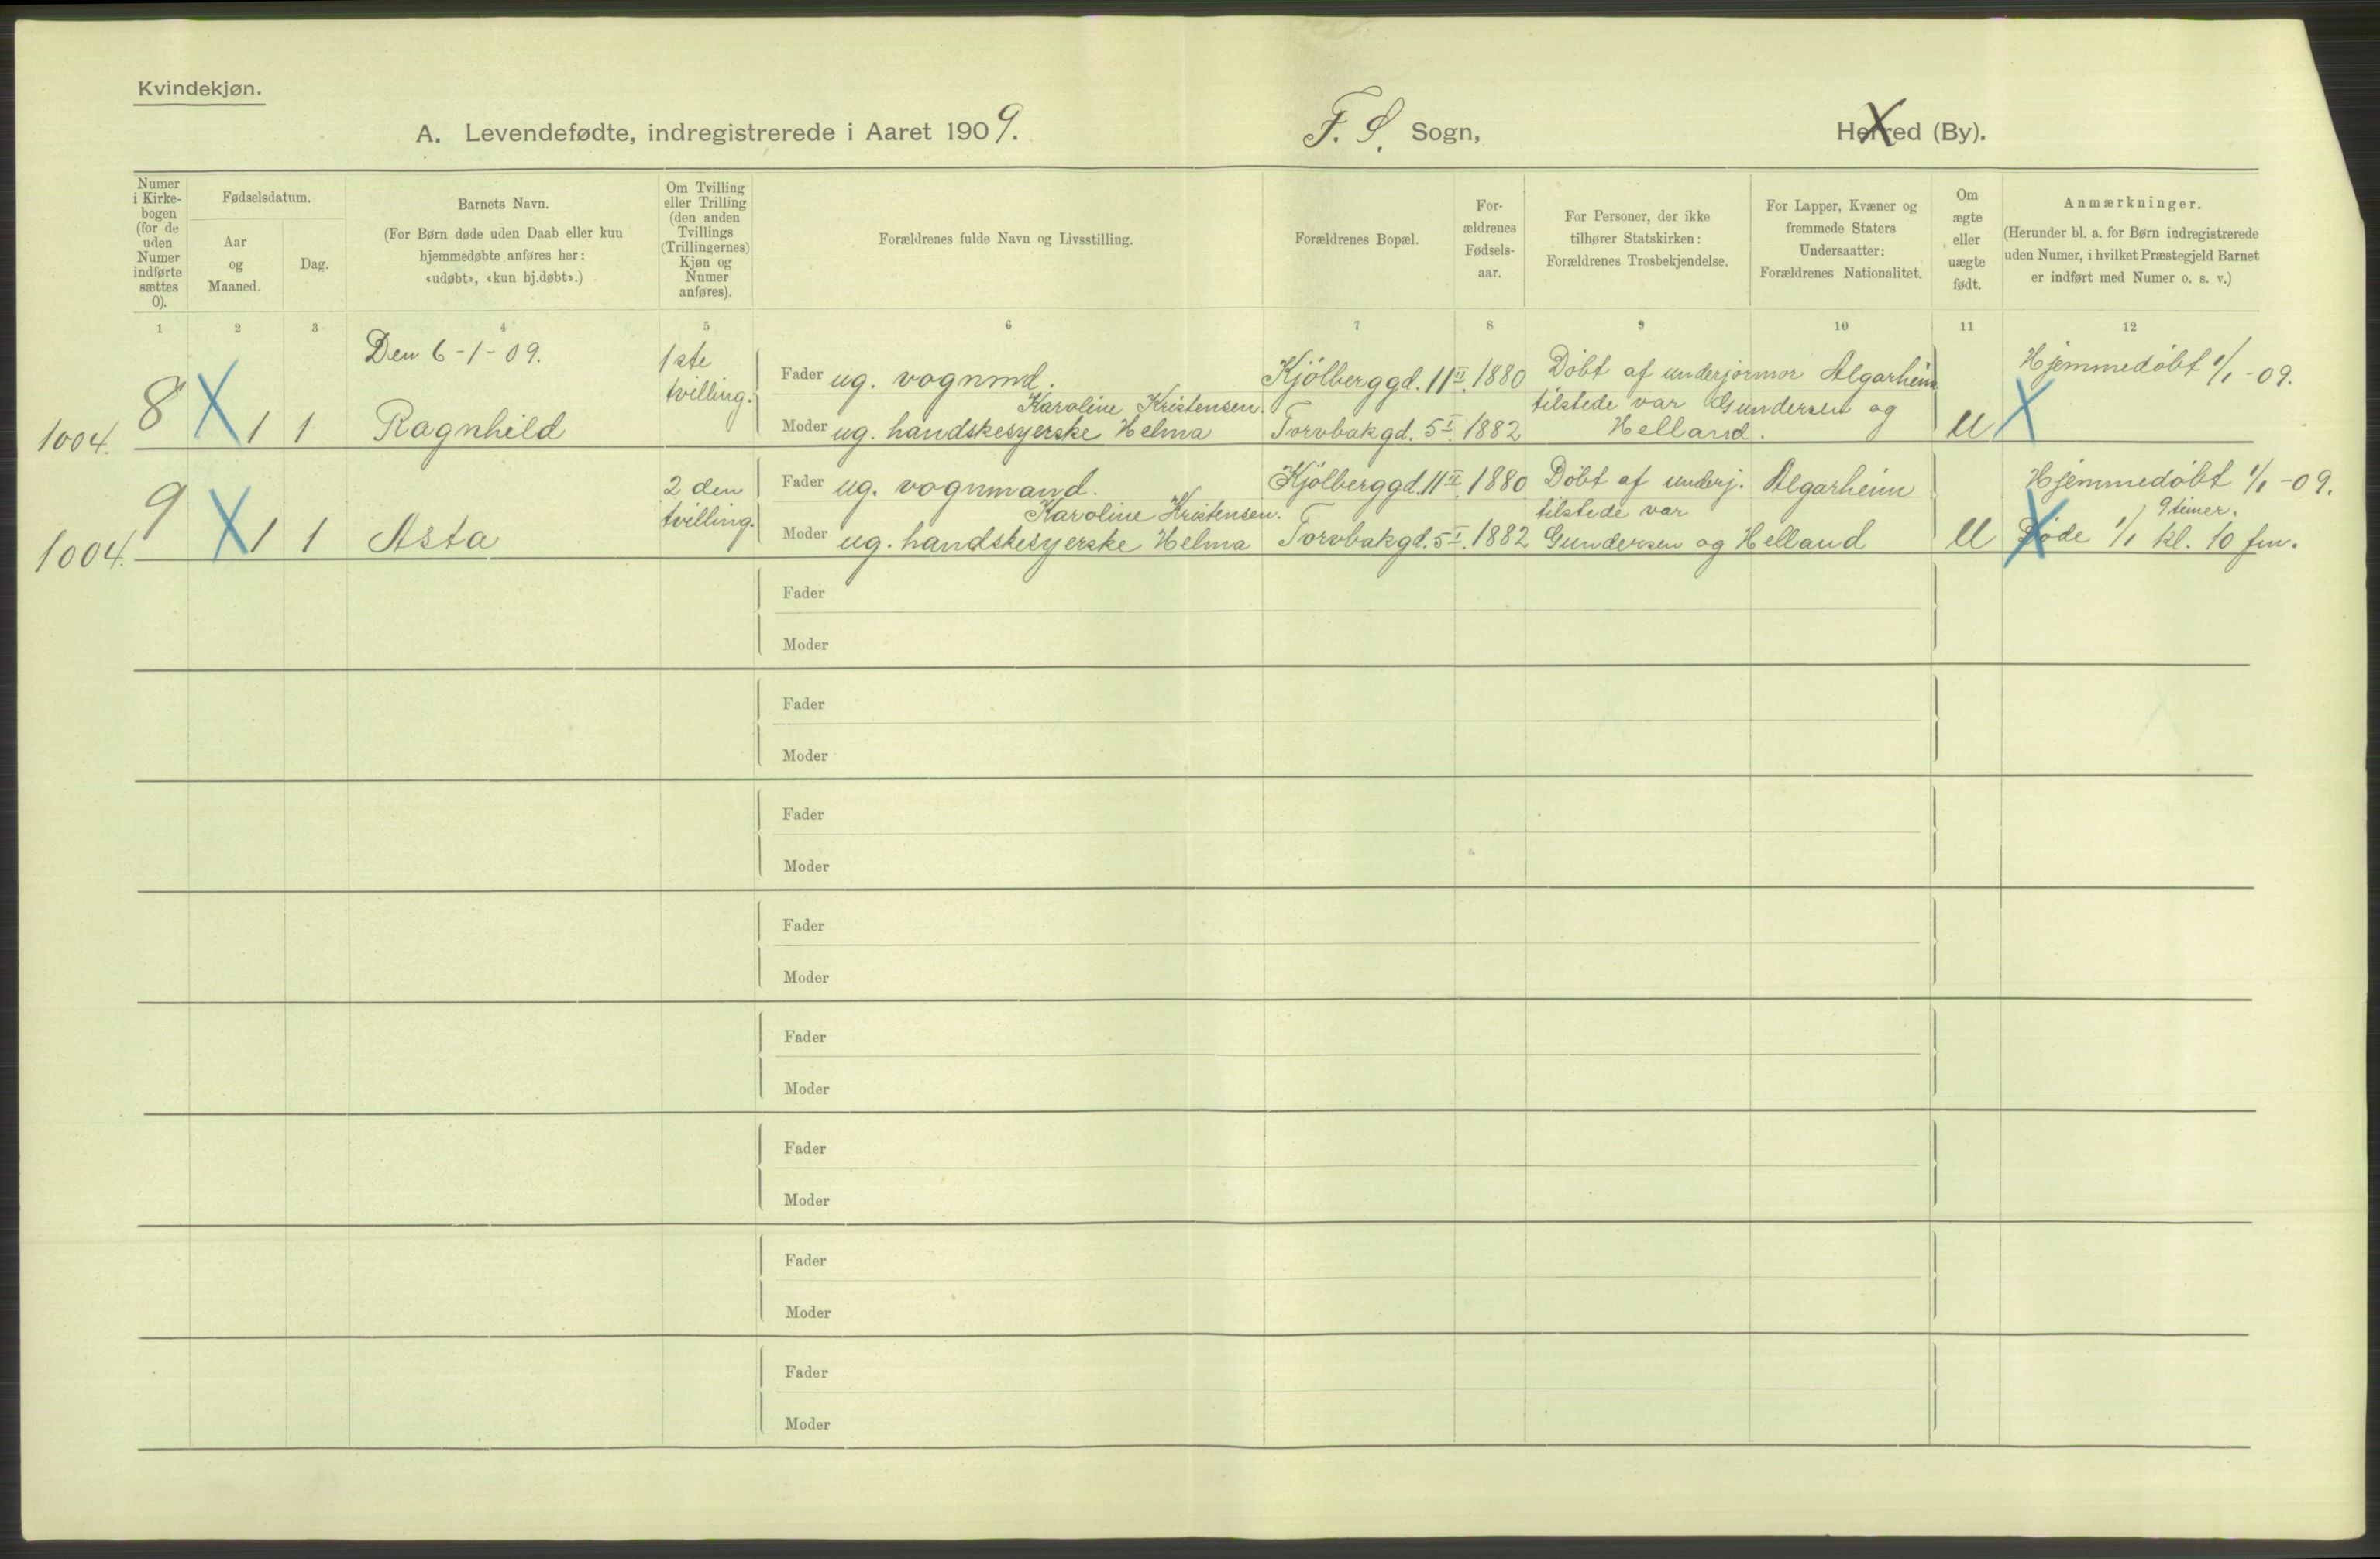 Kvindekjøn.
A. Levendefødte, indregistrerede i Aaret 1909. F. S. Sogn, Herred (By).
Numer i Kirkebogen (for de uden Numer indførte sættes 0).
Fødselsdatum.
Aar og Maaned.
Dag.
Barnets Navn.
(For Børn døde uden Daab eller kun
hjemmedøbte anføres her:
«udøbt», «kun hj.døbt».)
Om Tvilling
eller Trilling
(den anden
Tvillings
(Trillingernes)
Kjøn og
Numer
anføres).
Forældrenes fulde Navn og Livsstilling.
Forældrenes Bopæl.
For-
ældrenes
Fødsels-
aar.
For Personer, der ikke
tilhører Statskirken:
Forældrenes Trosbekjendelse.
For Lapper, Kvæner og
fremmede Staters
Undersaatter:
Forældrenes Nationalitet.
Om
ægte
eller
uægte
født.
Anmærkninger.
(Herunder bl. a. for Børn indregistrerede
uden Numer, i hvilket Præstegjeld Barnet
er indført med Numer o. s. v.)
1 2 3 4 5 6 7 8 9 10 11 12
Den 6-1-09.
1004. 8 X 1 1 Ragnhild
1ste
tvilling.
Fader ug. vognmd. Kjölberggd. 11 II. 1880
Karoline Kristensen.
Moder ug. handskesyerske Helma Torvbakgd. 5 I. 1882
Döbt af underjormor Algarheim
tilstede var Gundersen og
Helland.
U X
Hjemmedöbt 1/1-09.
1004. 9 X 1 1 Asta
2 den
tvilling.
Fader ug. vognmand. Kjölberggd. 11 II. 1880
Karoline Kristensen.
Moder ug. handskesyerske Helma Torvbakgd. 5 I. 1882
Döbt af underj. Algarheim
tilstede var
Gundersen og Helland
U X
Hjemmedöbt 1/1-09.
9 timer.
Döde 1/1 kl. 10 fm.
Fader
Moder
Fader
Moder
Fader
Moder
Fader
Moder
Fader
Moder
Fader
Moder
Fader
Moder
Fader
Moder